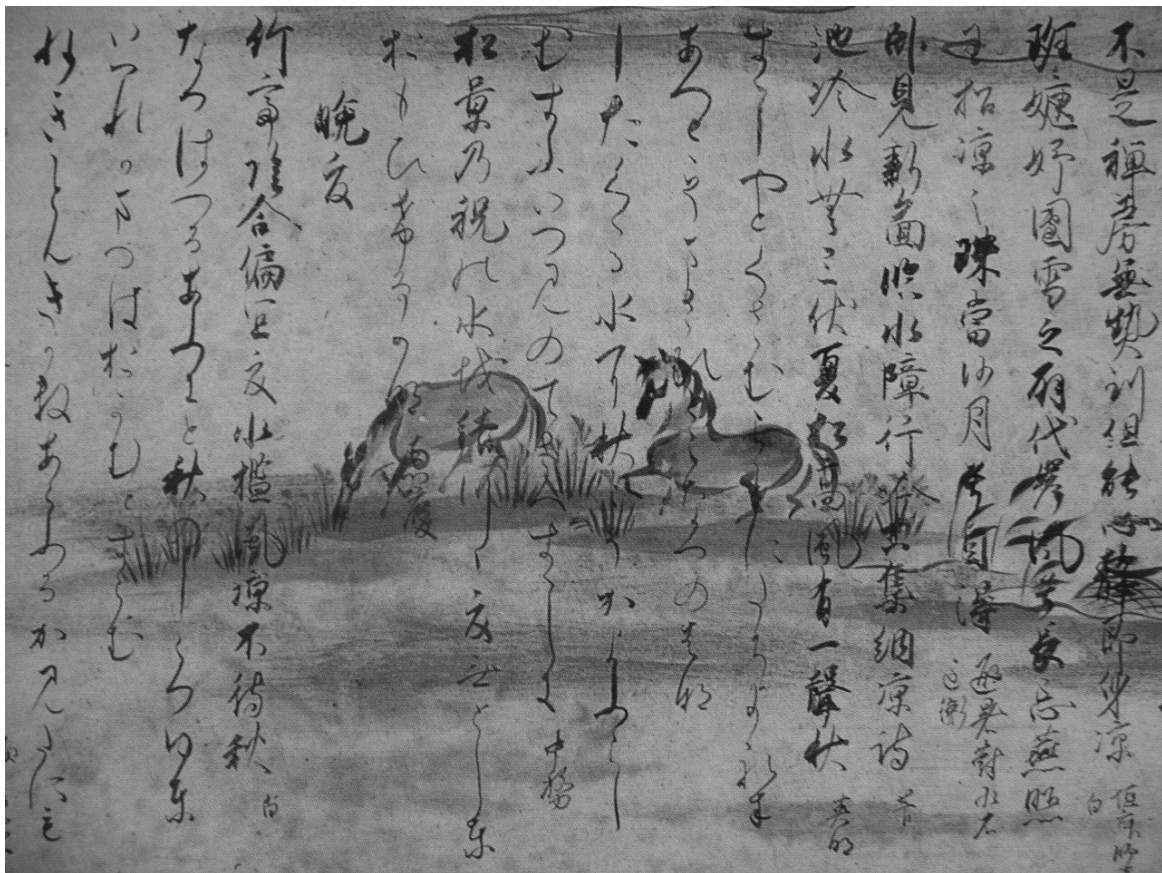 不是禅房無熱到但能心静即身涼 白
班婕妤團雪之扇代岸風兮長忘燕昭
王招涼之珠當沙月兮自得 避暑對水石 匡衡
臥見新圖臨水障行吟古集納涼詩 菅
池冷水無三伏夏松高風有一聲秋 英明
すゝしやとくさむらことにたちよれは
あつさそまさるとこなつの花
したくゝる水に秋こそかよふらし
むすふいつみのてさへすゝしき 中務
松影乃岩井の水越結ひあけて夏なきとしと
おもひける可那 恵慶
晩夏
竹亭陰合偏宜夏水檻風涼不待秋 白
なつはつるあふきと秋のしらつゆと
いつれかまつはおかむとすらむ
ねきことも きかすあらふるかみたにも